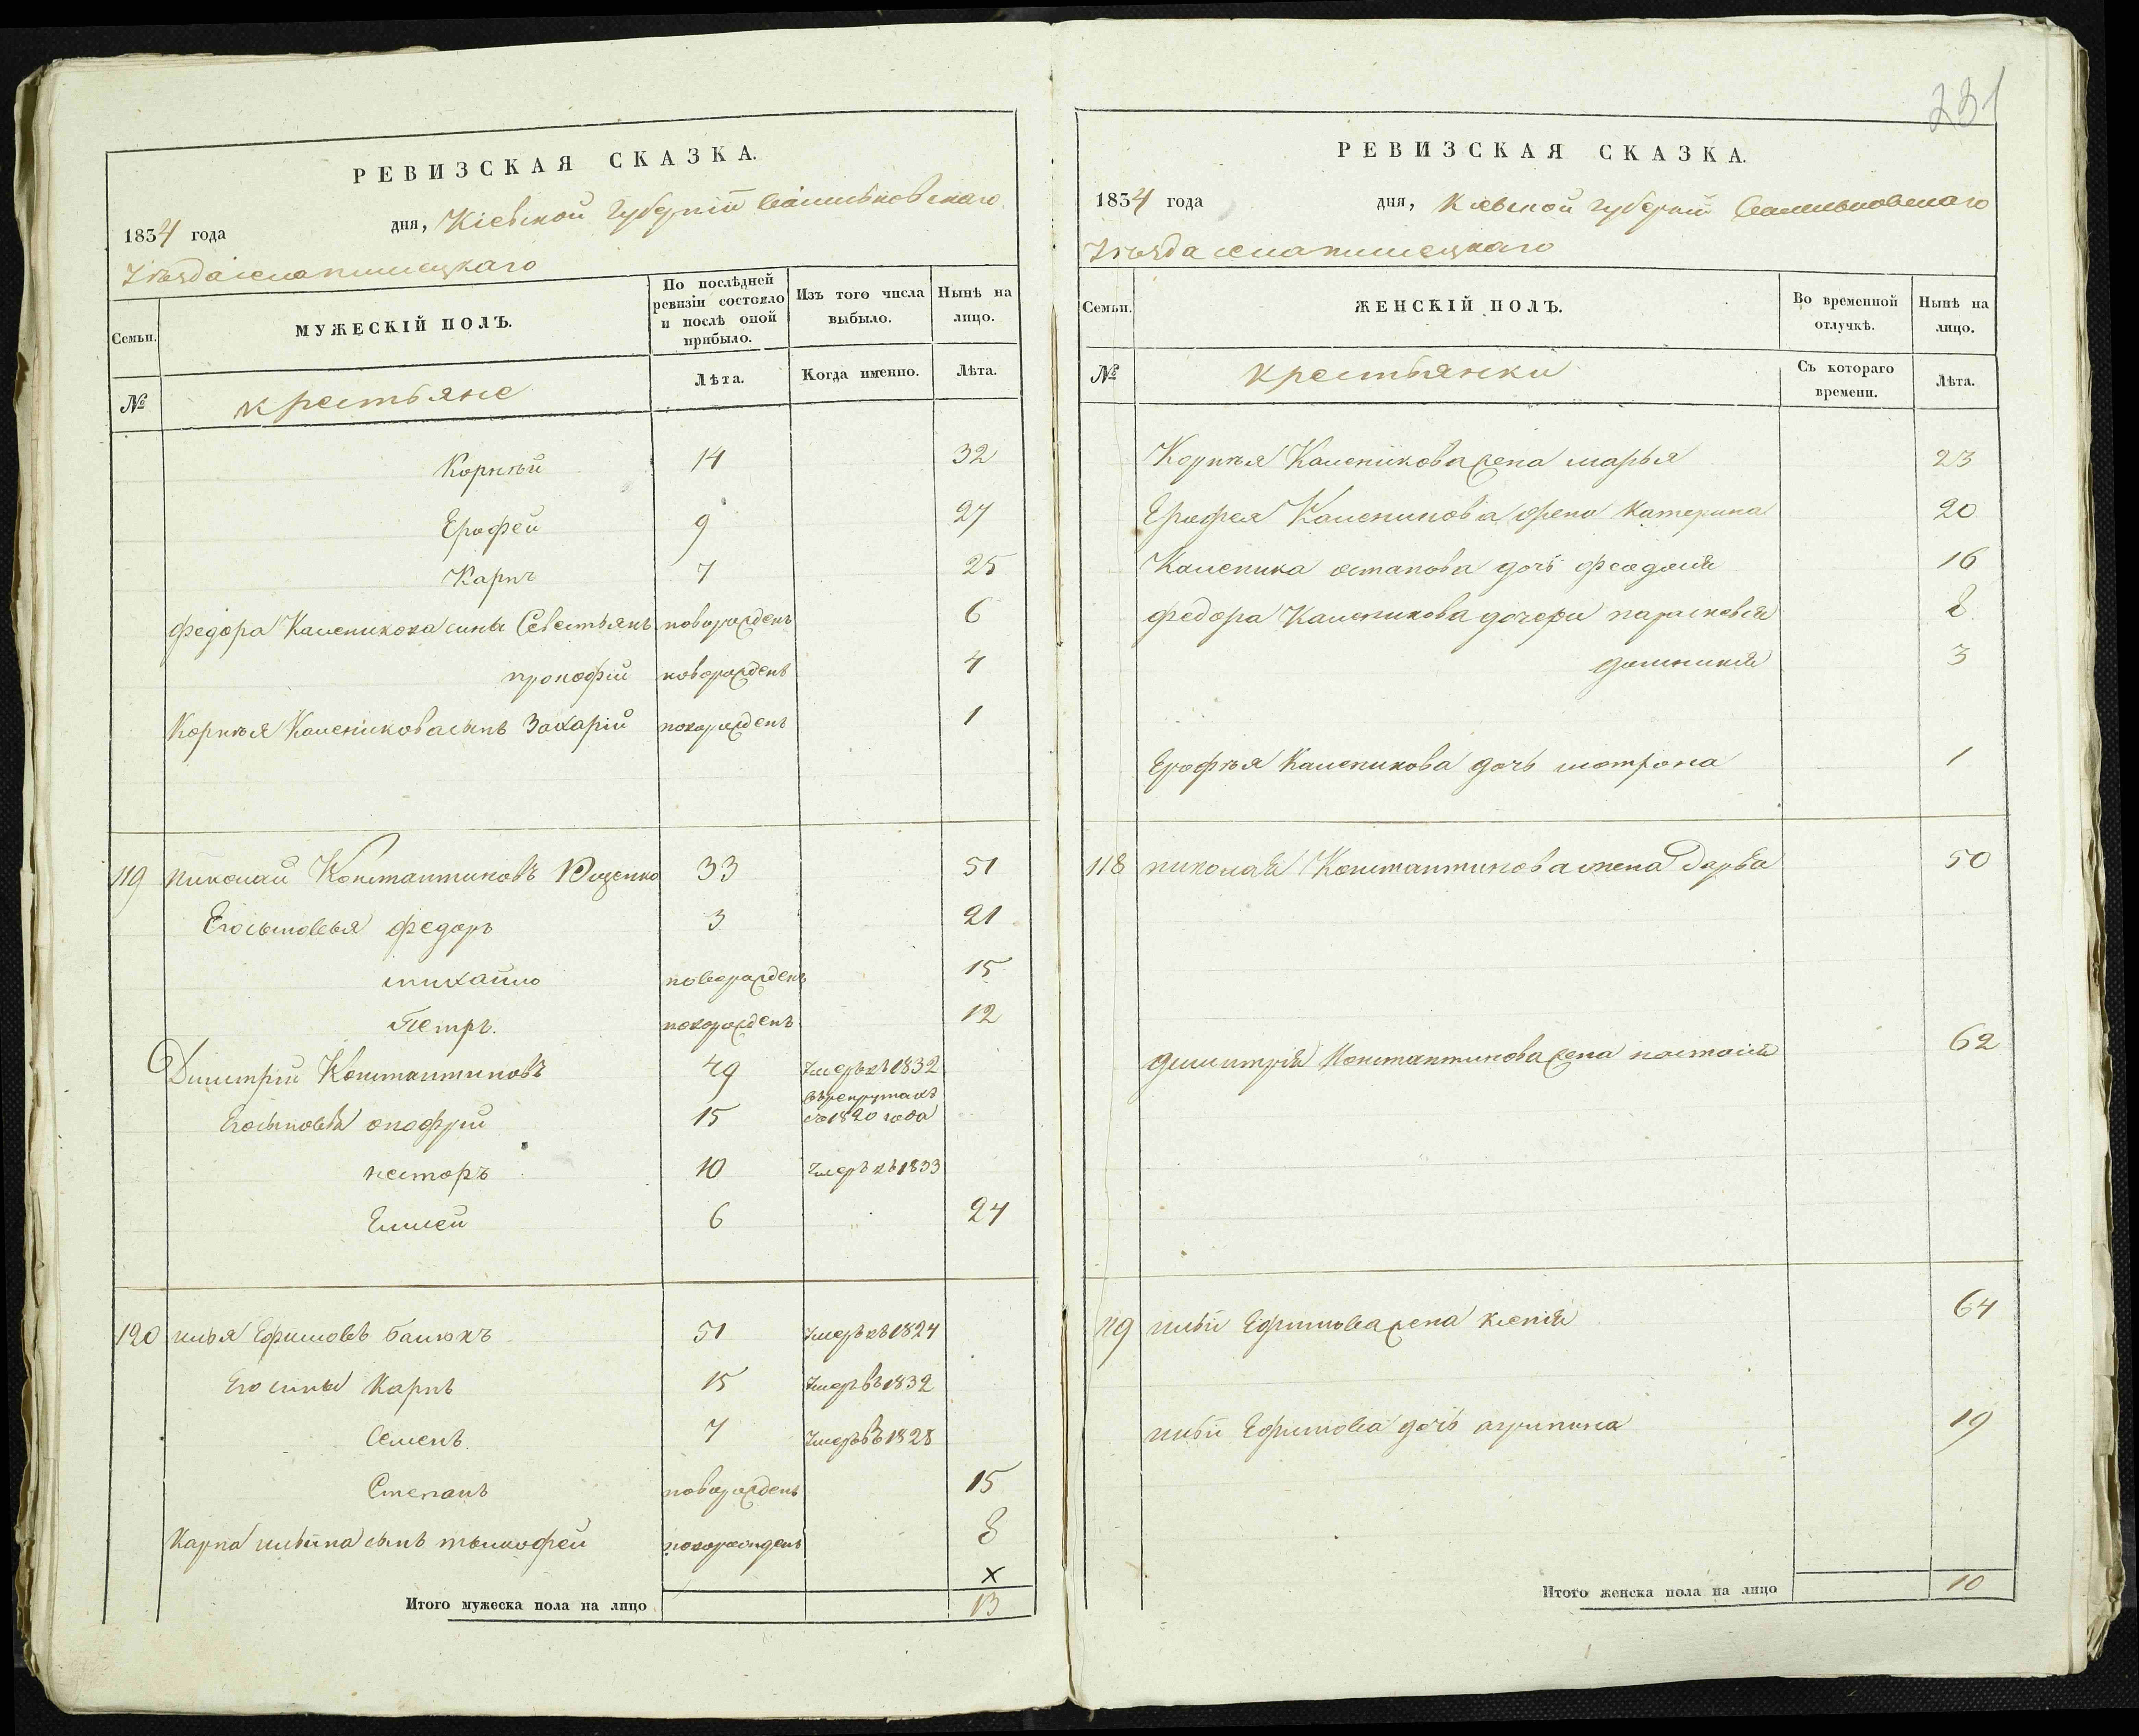 231
РЕВИЗСКАЯ СКАЗКА.
1834 года дня, Кіевской Губерніи Васильковскаго
Уѣзда села
МУЖЕСКІЙ ПОЛЪ.
Семьи.
№
По послѣдней ревизіи состояло и послѣ оной прибыло.
Лѣта.
Изъ того числа выбыло.
Когда именно.
Нынѣ на лицо.
Лѣта.
крестьяне
Корнѣй 14 32
Ерофей 9 27
Карпъ 7 25
федора Каленикова сины Севестьянъ новорожденъ 6
прокофій новорожденъ 4
Корнѣя Каленикова сынъ Захарій новорожденъ 1
119 николай Константиновъ Ющенко 33 51
Его сыновья федоръ 3 21
михайло новорожденъ 15
Петръ. новорожденъ 12
Димитрій Константиновъ 49 Умеръ въ 1832
Его сыновья онофрій 15 въ рекрутахъ съ 1820 года
несторъ 10 Умеръ въ 1833
Елисей 6 24
120 илья Ефимовъ 51 Умеръ въ 1824
Его сины Карпъ 15 Умеръ въ 1832
Семенъ. 7 Умеръ въ 1828
Степанъ новорожденъ 15
Карпа ильина сынъ тимофей новорожденъ 8
x
Итого мужеска пола на лицо 13
РЕВИЗСКАЯ СКАЗКА.
1834 года дня, Кіевской Губерніи Васильковскаго
Уѣзда села
Семьи.
№
ЖЕНСКІЙ ПОЛЪ.
Во временной отлучкѣ.
Съ котораго времени.
Нынѣ на лицо.
Лѣта.
крестьянки
Корнѣя Каленикова жена марья 23
Ерофея Каленикова жена Катерина 20
Каленика остапова дочь феодосія 16
федора Каленикова дочери парасковія 8
домникія 3
Ерофѣя Каленикова дочь мотрона 1
118 николая Константинова жена Дарья 50
димитрія Константинова жена настасія 62
119 ильи Ефимова жена ксенія 64
ильи Ефимова дочь агрипина 19
Итого женска пола на лицо 10